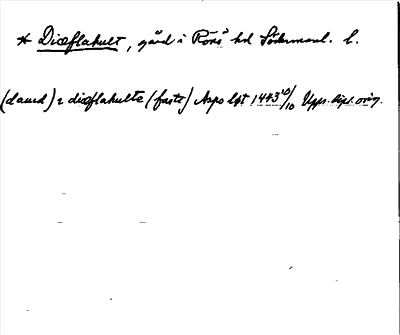 * Diæflahult, gård i Rönö hd Södermanl. l.
(dauid) i diæflahulte (faste) Aspo lgt 1443 10/10 Upps. dipl. orig.